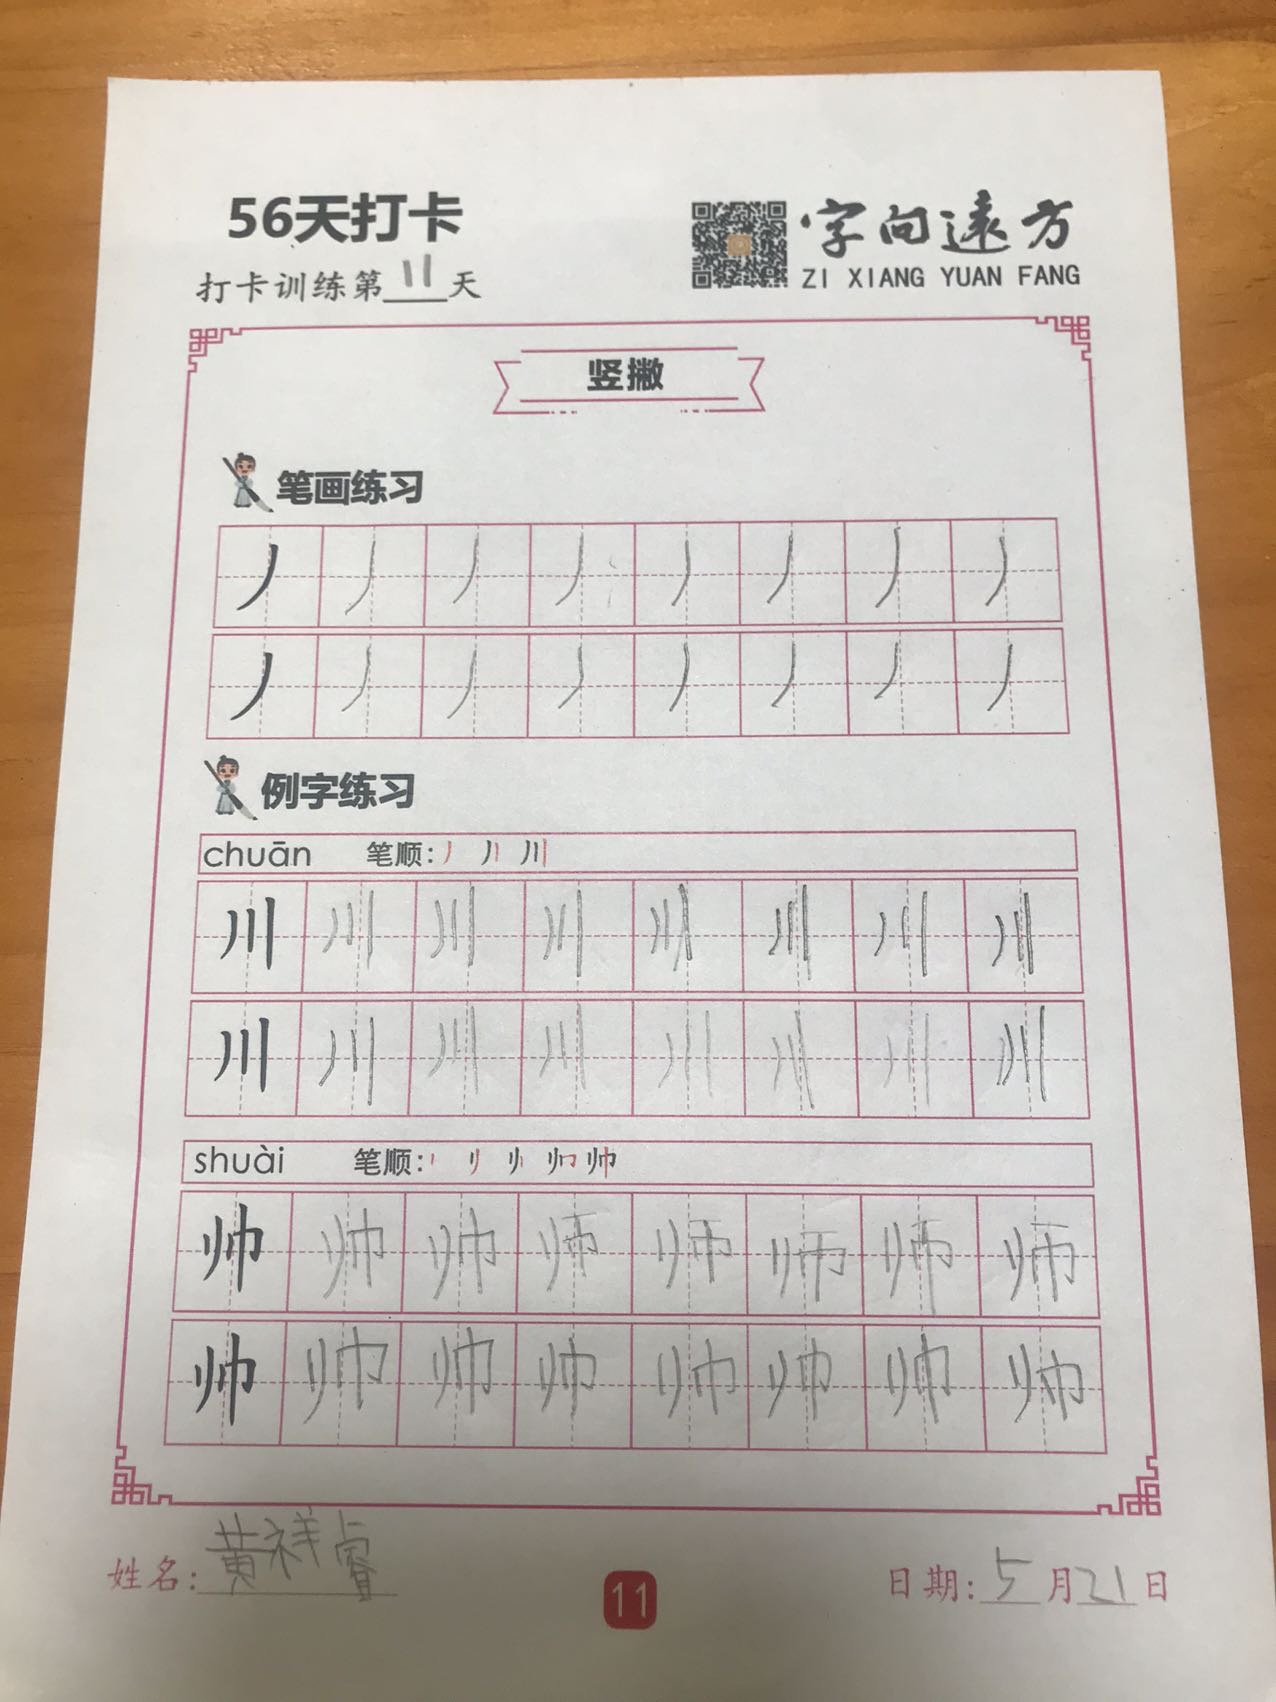 56天打卡
字向远方
打卡训练第11天
ZI XIANG YUAN FANG
竖撇
笔画练习
丿丿丿丿丿丿丿丿
丿丿丿丿丿丿丿丿
例字练习
chuān 笔顺:丿 丿丨 川
川川川川川川川川
川川川川川川川川
shuài 笔顺:
帅帅帅师师师师师
帅帅帅帅帅帅帅帅
姓名:黄祥睿
11
日期:5月21日